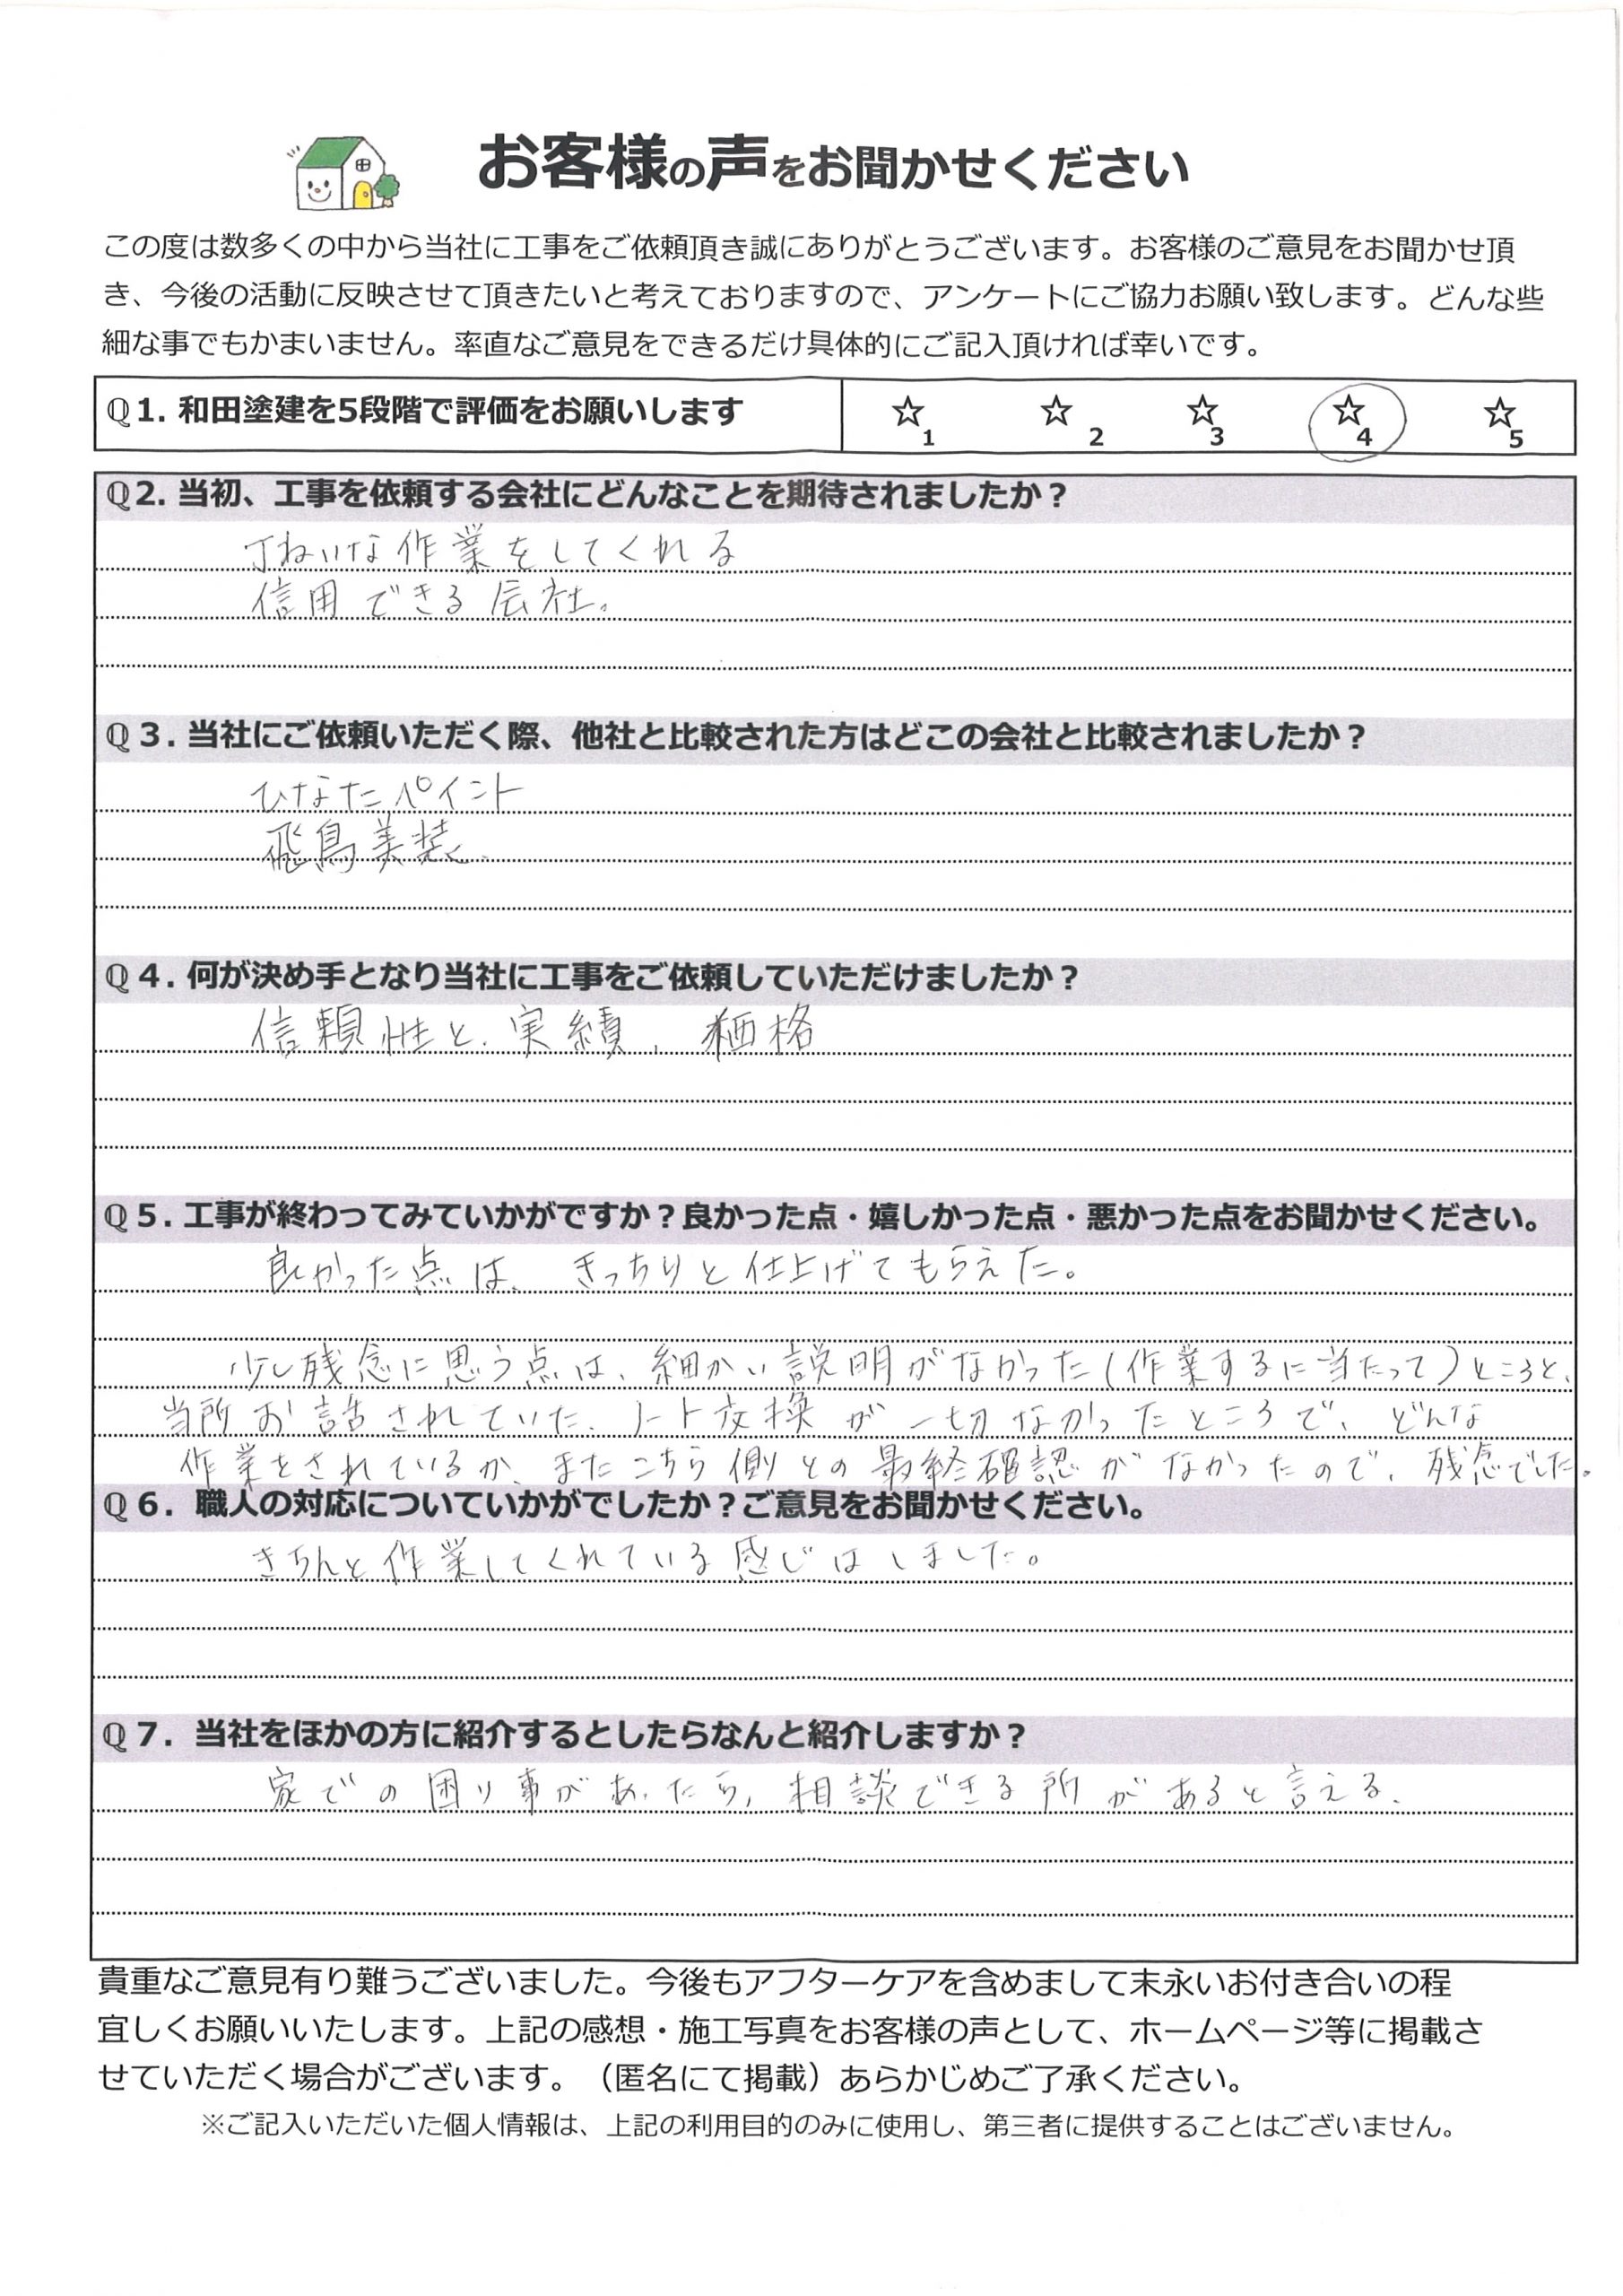 お客様の声をお聞かせください
この度は数多くの中から当社に工事をご依頼頂き誠にありがとうございます。お客様のご意見をお聞かせ頂
き、今後の活動に反映させて頂きたいと考えておりますので、アンケートにご協力お願い致します。どんな些
細な事でもかまいません。率直なご意見をできるだけ具体的にご記入頂ければ幸いです。
Q1. 和田塗建を5段階で評価をお願いします ☆1 ☆2 ☆3 ☆4 ☆5
Q2. 当初、工事を依頼する会社にどんなことを期待されましたか？
丁ねいな作業をしてくれる
信用できる会社。
Q3. 当社にご依頼いただく際、他社と比較された方はどこの会社と比較されましたか？
ひなたペイント
飛鳥美装.
Q4. 何が決め手となり当社に工事をご依頼していただけましたか？
信頼性と、実績、価格
Q5. 工事が終わってみていかがですか？良かった点・嬉しかった点・悪かった点をお聞かせください。
良かった点は、きっちりと仕上げてもらえた。
少し残念に思う点は、細かい説明がなかった(作業するに当たって)ところと、
当所お話されていた、ノート交換が一切なかったところで、どんな
作業をされているか、またこちら側との最終確認がなかったので、残念でした。
Q6. 職人の対応についていかがでしたか？ご意見をお聞かせください。
きちんと作業してくれている感じはしました。
Q7. 当社をほかの方に紹介するとしたらなんと紹介しますか？
家での困り事があったら、相談できる所があると言える.
貴重なご意見有り難うございました。今後もアフターケアを含めまして末永いお付き合いの程
宜しくお願いいたします。上記の感想・施工写真をお客様の声として、ホームページ等に掲載さ
せていただく場合がございます。（匿名にて掲載）あらかじめご了承ください。
※ご記入いただいた個人情報は、上記の利用目的のみに使用し、第三者に提供することはございません。